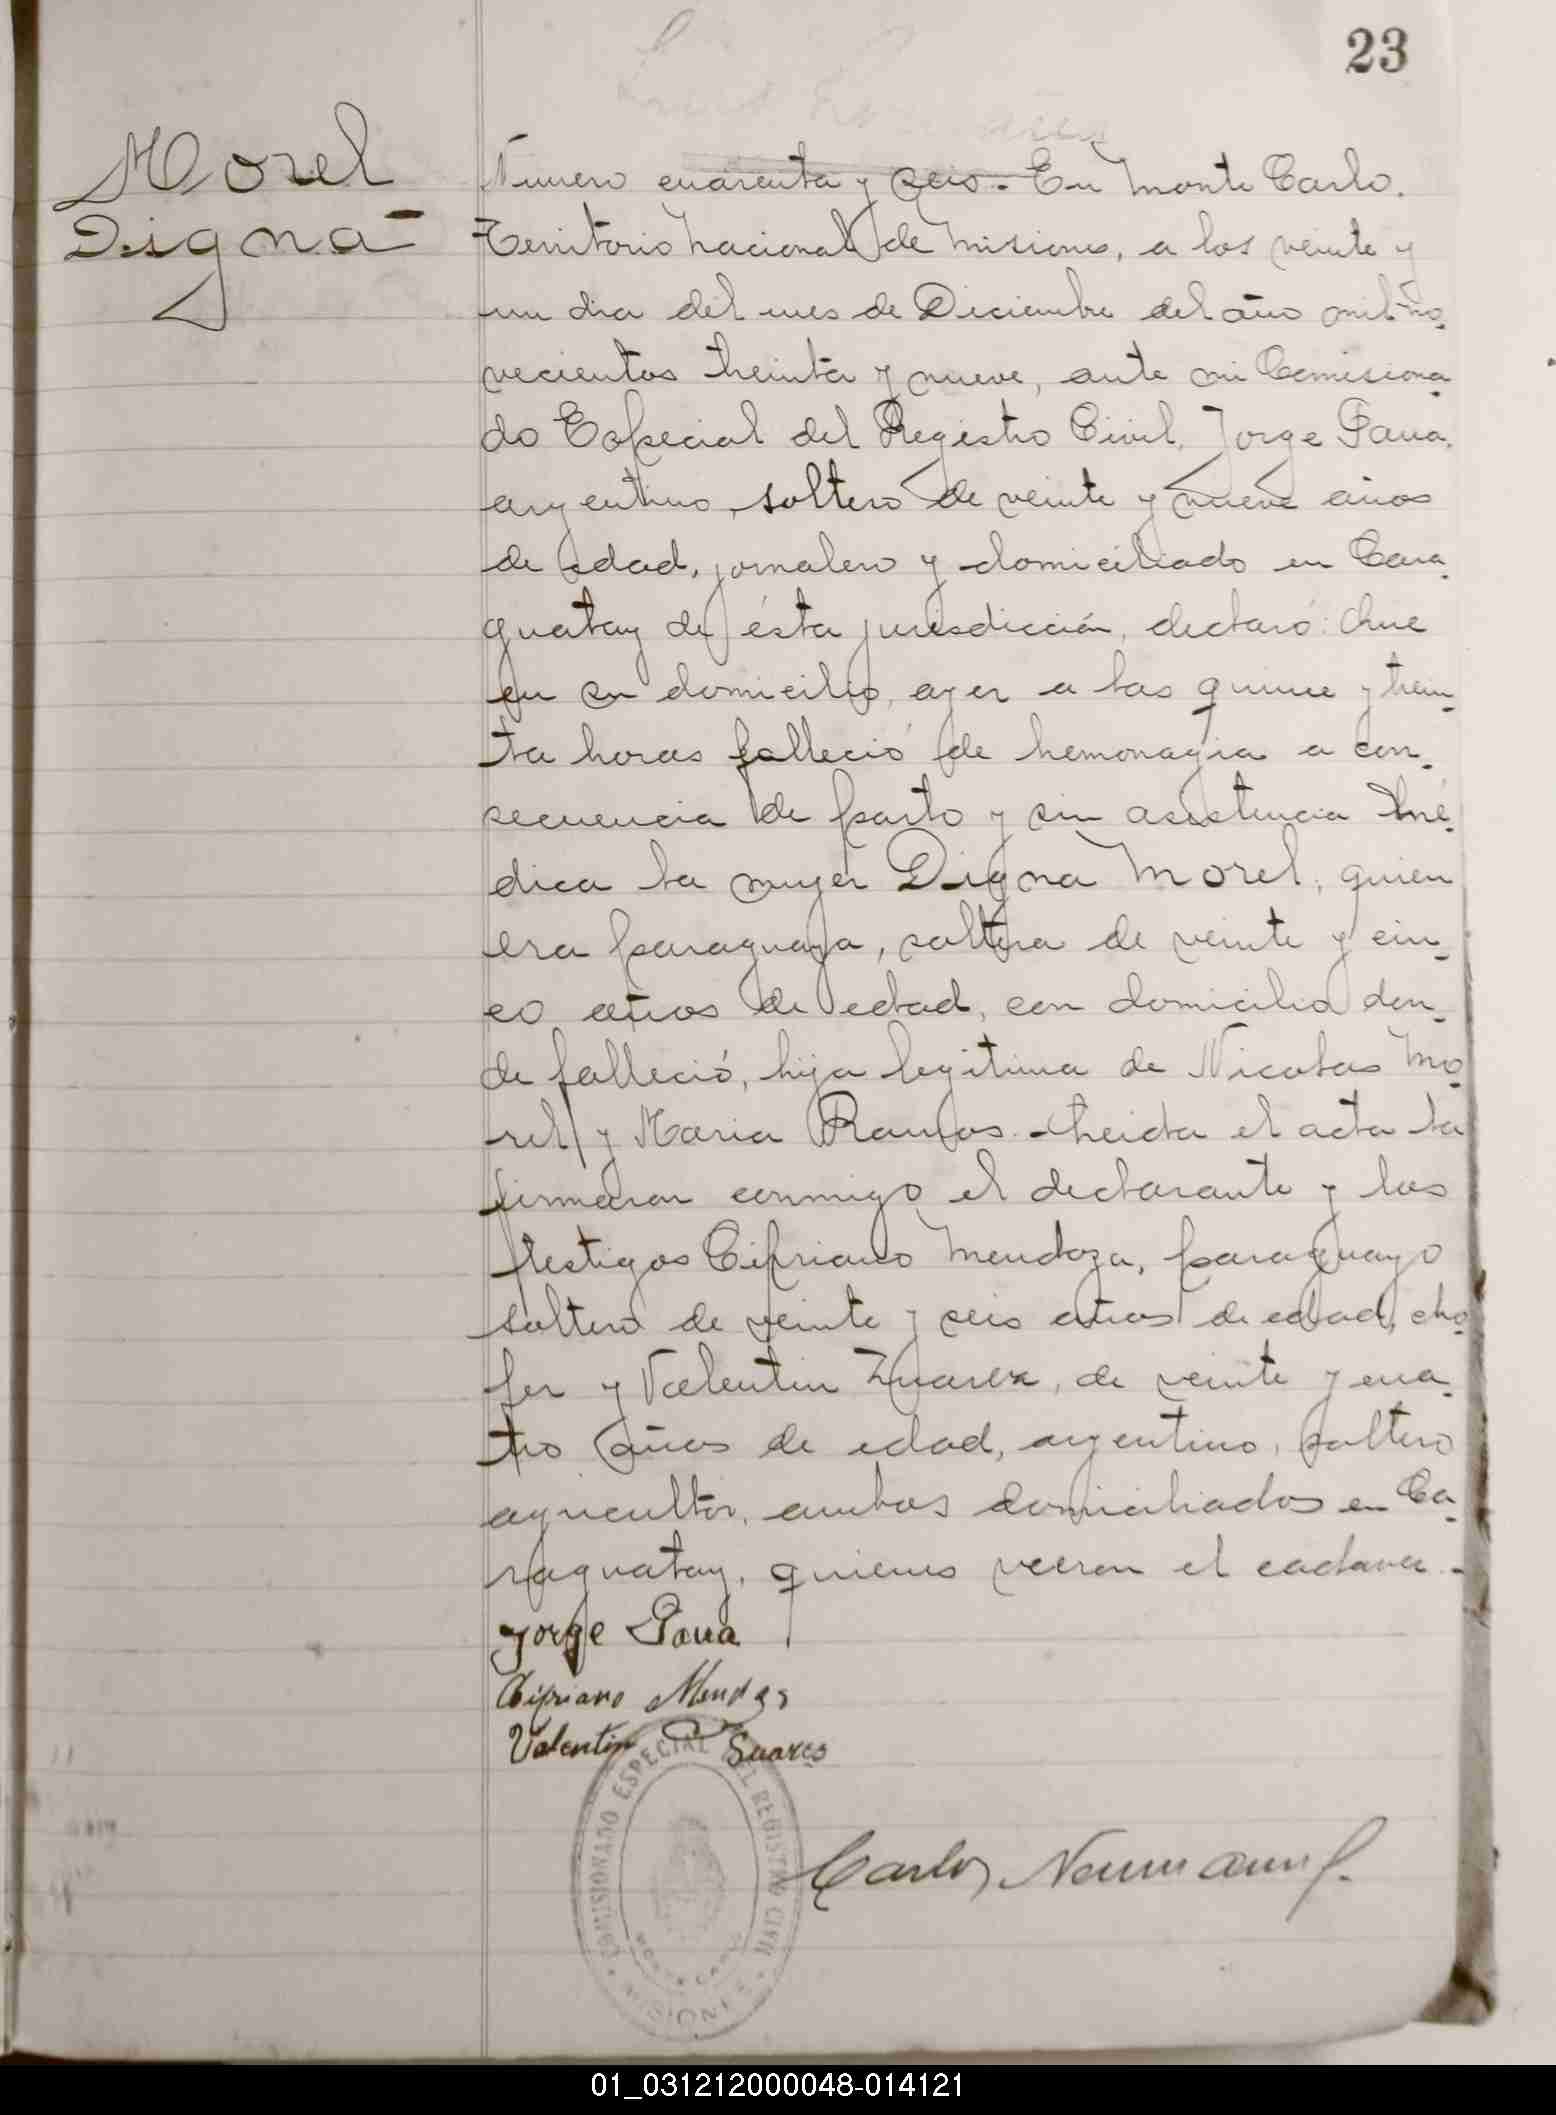 23
Morel
Digna
Numero cuarenta y seis.- En Monte Carlo.
Territorio Nacional de Misiones, a los veinte y
un dia del mes de Diciembre del año mil no-
vecientos treinta y nueve, ante mi Comisiona-
do Especial del Registro Civil, Jorge
argentino, soltero de veinte y nueve años
de edad, jornalero y domiciliado en Cara-
guatay de ésta jurisdicción, declaró: Que
en su domicilio, ayer a las quince y trein-
ta horas falleció de hemorragia a con-
secuencia de parto y sin asistencia mé-
dica la mujer Digna Morel, quien
era paraguaya, soltera de veinte y cin-
co años de edad, con domicilio don-
de falleció, hija legitima de Nicolas Mo-
rel y Maria Ramos.- Leida el acta la
firmaron conmigo el declarante y los
testigos Cipriano Mendoza, paraguayo
soltero de veinte y seis años de edad, cho-
fer y Valentin Zuarez, de veinte y cua-
tro años de edad, argentino, soltero
agricultor, ambos domiciliados en Ca-
raguatay, quienes vieron el cadaver.-
Jorge
Cipriano
Valentin Suares
COMISIONADO ESPECIAL DEL REGISTRO CIVIL
MONTE CARLO
MISIONES
Carlos Naumann
01_031212000048-014121